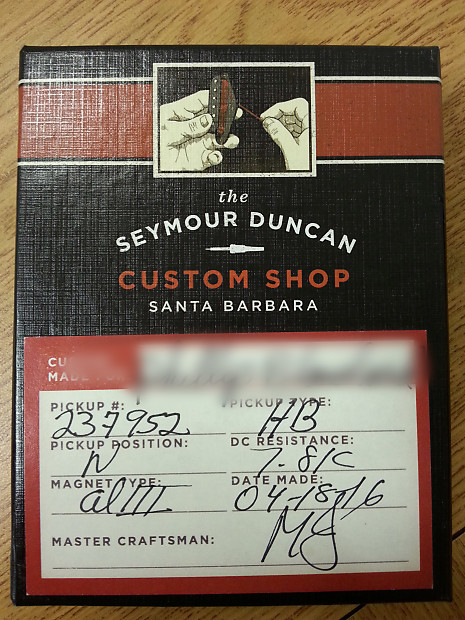 the
SEYMOUR DUNCAN
CUSTOM SHOP
SANTA BARBARA
PICKUP #:
PICKUP TYPE:
237952
HB
PICKUP POSITION:
DC RESISTANCE:
N
7.81C
MAGNET TYPE:
DATE MADE:
alIII
04-18-16
MASTER CRAFTSMAN:
MJ